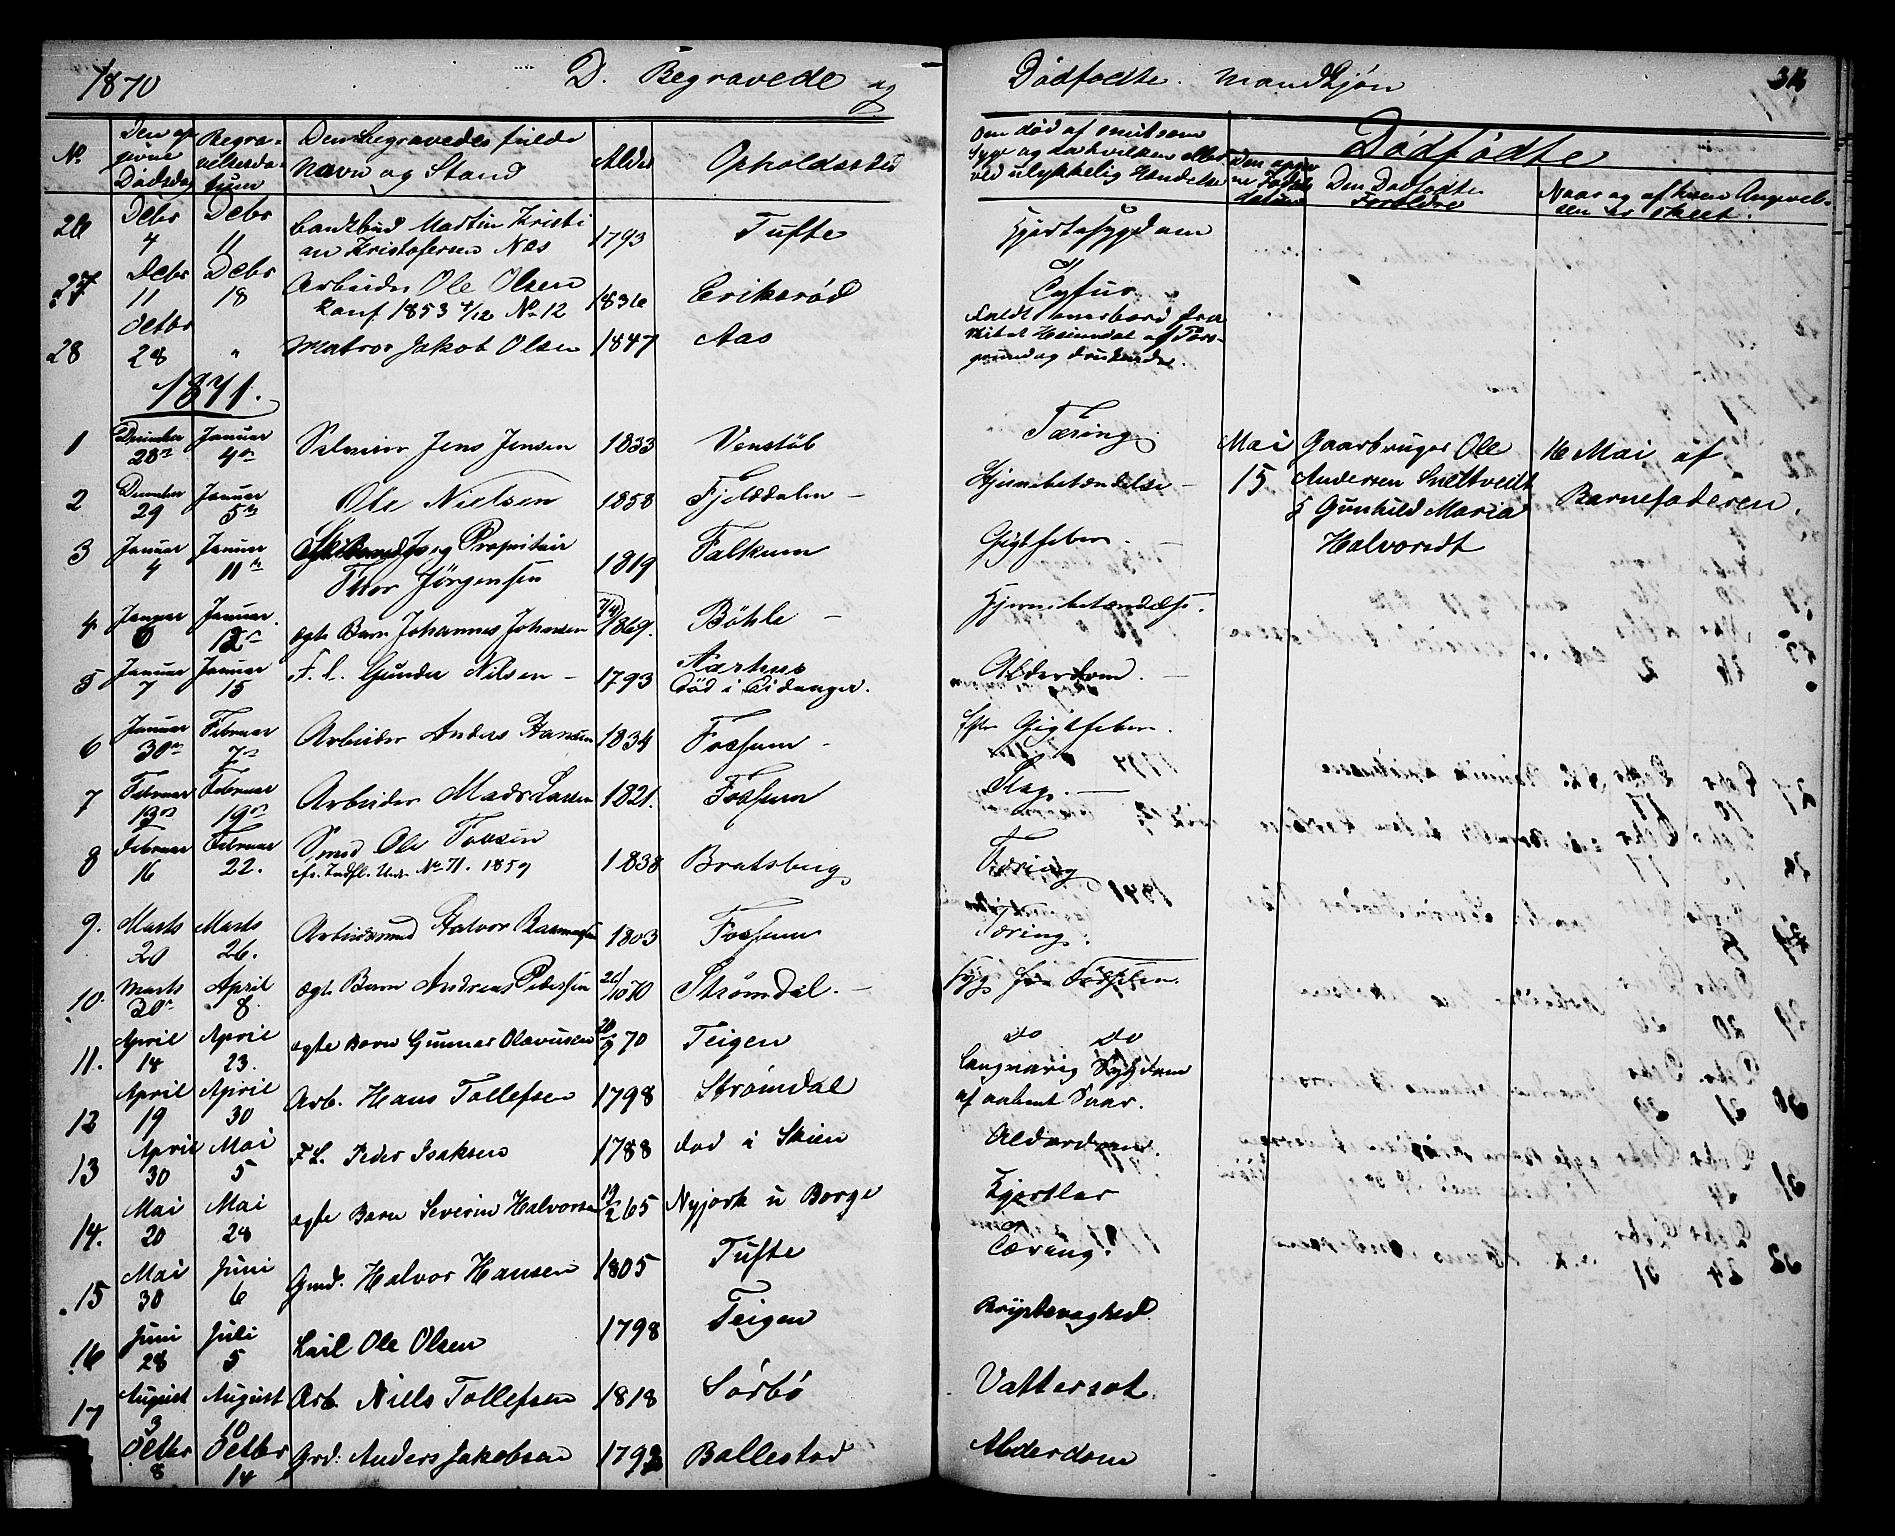 1870
D. Begravede og
Dødfødte. Mandkjøn
No.
Den op
givne
Dødsdag
Begra-
velsesda-
tum
Den Begravedes fulde
Navn og Stand
Alder
Opholdssted
Om død af smitsom
Syge og da hvilken eller
ved ulykkelig Hændelse
Dødfødte
Den Dødfødtes
Forældre
Naar og af hvem Anmel-
sen er skeet.
26 Debr 4 Debr 11 Martin Kristi
an Kristofersen Næs 1793 Tufte Hjertesygdom
27 Debr 11 Debr 18 Arbeider Ole Olsen
Konf. 1853 No 12 1836 Eriksrød Tyfus
28 Octbr 28 " Matros Jakob Olsen 1847 Aas Faldt overbord fra
Skibet Heimdal af Pors-
grund og druknede.
1871.
1 December 28de Januar 4de Selveier Jens Jensen 1833 Venstøb Tæring.
2 December 29 Januar 5te Ole Nielsen 1858 Fjelddalen – Hjernebetændelse –
3 Januar 4 Januar 11te og Proprietair
Thor Jørgensen 1819 Falkum Gigtfeber.
4 Januar Januar 12te ægte Barn Johannes Johansen 1869. Bøhle – Hjernebetændelse.
5 Januar 7 Januar 15 F. L. Gunder Nilsen – 1793 Aarhus
død i Eidanger. Alderdom. –
6 Januar 30te Februar 7de Arbeider Anders Hansen 1834 Fossum – Gigtfeber.
7 Februar 13de Februar 19de Arbeider Mads Larsen 1821. Fossum Slag. –
8 Februar 16 Februar 22. Smed Ole
No 71. 1859 1838 Bratsberg Tæring
9. Marts 20 Marts 26. Arbeidsmand Halvor Rasmussen 1803 Fossum Tæring.
10. Marts 30te April 8. ægte Barn Andreas Pedersen 70 Strømdal. – Syg fra Fødselen.
11. April 18 April 23. ægte Barn Gunnar Olavusen 70 Teigen do do
12 April 19 April 30 Arb. Hans Tollefsen 1798 Strømdal Langvarig Sygdom
af aabent Saar.
13 April 30 Mai 5 F. L. Peder Isaksen 1788 død i Skien Alderdom.
14. Mai 20 Mai 28 ægte Barn Severin Halvorsen 19/2 65 Nyjork u Borge
15 Mai 30 Juni 6 Gmd. Halvor Hansen 1805 Tufte Tæring.
16 Juni 28 Juli 5 Ole Olsen 1798 Teigen Brystsvaghed.
17 August 3 August 10 Arb. Niels Tollefsen 1818 Sørbø Vattersot.
Octbr 8 Octbr 14 Grd: Anders Jakobsen 1792 Ballestad Alderdom
Mai
15
Gaarbruger Ole
Andersen Snettvedt
& Gunhild Maria
Halvorsdt
16 Mai af
Barnefaderen.